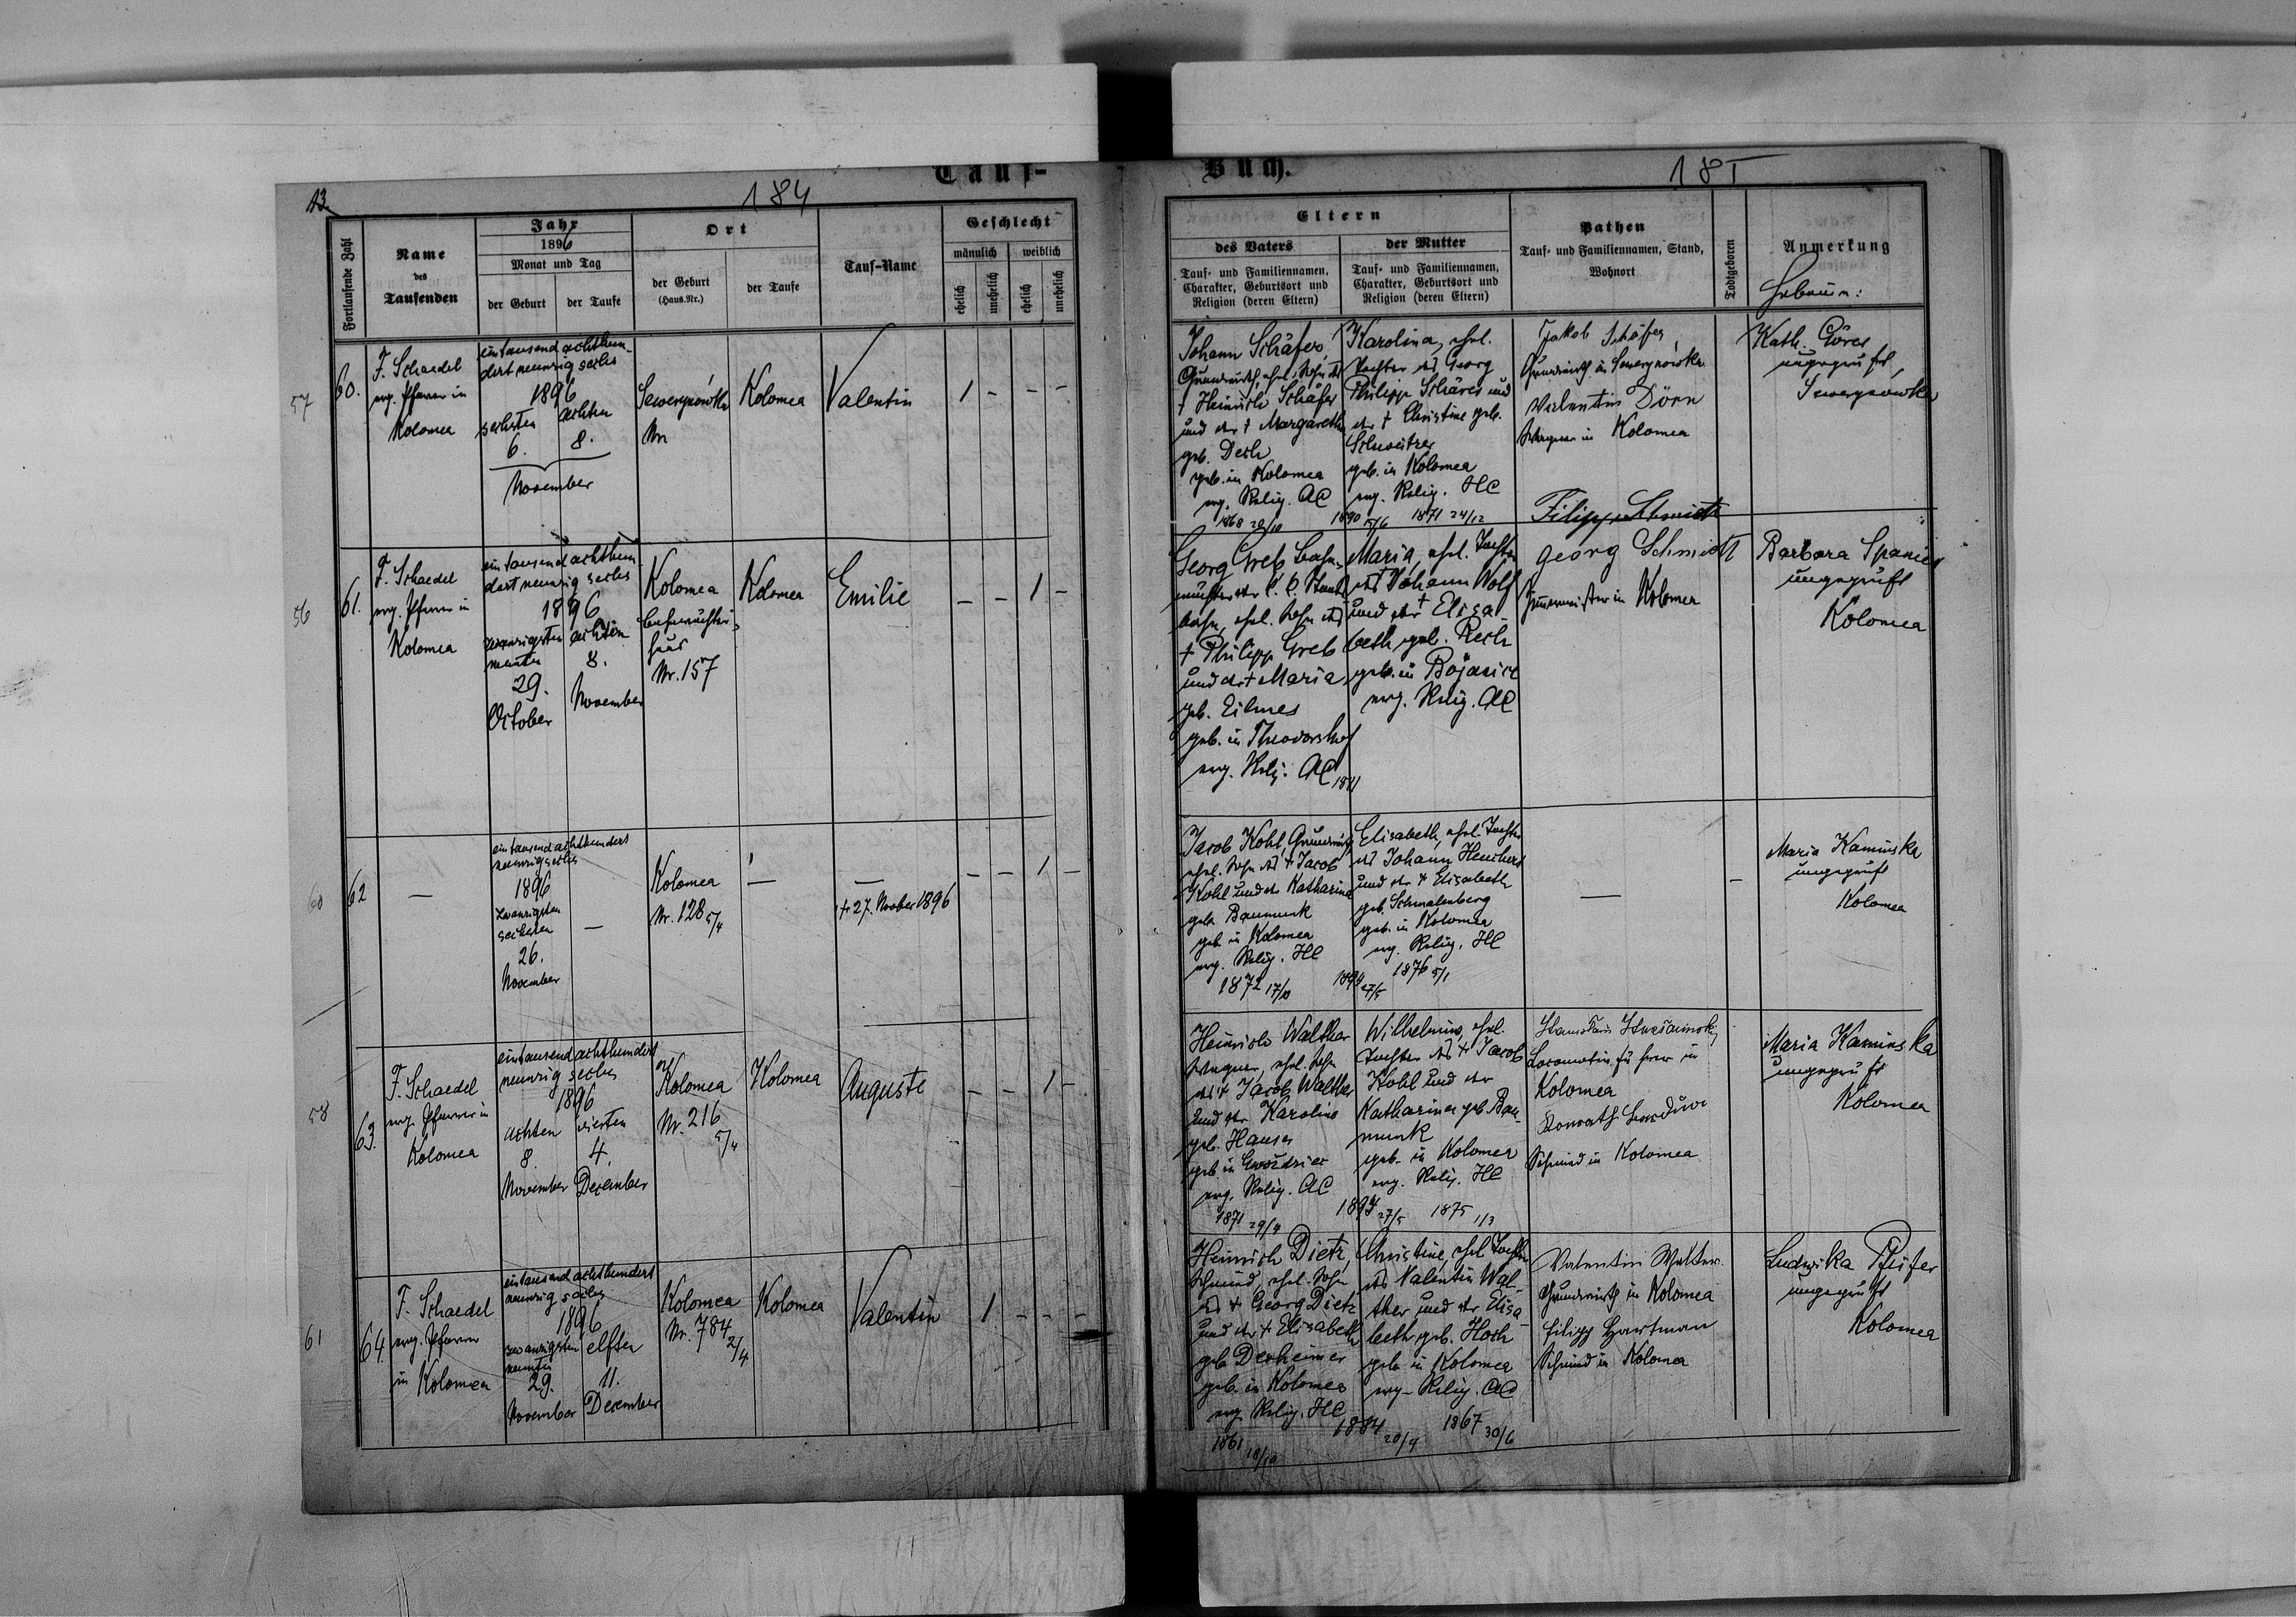 Tauf-
Buch.
13.
184
185
Fortlaufende Zahl
Name
des
Taufenden
Jahr
1896
Monat und Tag
der Geburt
der Taufe
Ort
der Geburt
(Haus.Nr.)
der Taufe
Tauf-Name
Geschlecht
männlich
weiblich
ehelich
unehelich
ehelich
unehelich
Eltern
des Vaters
Tauf- und Familiennamen,
Charakter, Geburtsort und
Religion (deren Eltern)
der Mutter
Tauf- und Familiennamen,
Charakter, Geburtsort und
Religion (deren Eltern)
Pathen
Tauf- und Familiennamen, Stand,
Wohnort
Todtgeboren
Anmerkung
57
60.
F. Schaedel
evg. Pfarrer in
Kolomea
eintausend achthun-
dert neunzig sechs
1896
sechsten
6.
achten
8.
November
Sewerynówka
Nr
Kolomea
Valentin
1 - - -
Johann Schäfer,
Grundwirth, ehel. Sohn des
† Heinrich Schäfer
und der † Margareth
geb. Desh
geb. in Kolomea
evg. Relig. AC
1868 28/10
Karolina, ehel.
Tochter des Georg
Philipp Schäres und
der † Christine geb.
Schweitzer
geb. in Kolomea
evg. Relig. HC
1890 15/6 1871 24/12
Jakob Schäfer,
Grundwirth in Sewerynowka
Valentin Dörn
Wagner in Kolomea
Kath. Göres
ungeprüft,
Sewerynowka
56
61.
F. Schaedel
evg. Pfarrer in
Kolomea
eintausend achthun-
dert neunzig sechs
1896
zwanzigsten
neunten
29.
October
achten
8.
November
Kolomea
haus
Nr. 157
Kolomea
Emilie
- - 1 -
Georg Greb Bahn-
bahn, ehel. Sohn des
† Philipp Greb
und der † Maria,
geb. Eilmes
geb. in Theodorshof
evg. Relig. AC
Maria, ehel. Tochter
des Johann Wolf
und der † Elisa-
beth geb. Rech
geb. in Bojanice
evg. Relig. AC
Filipp Schmidt
Georg Schmidt
in Kolomea
Barbara Spanier
ungeprüft
Kolomea
60
62
-
eintausend achthundert
neunzig sechs
1896
zwanzigsten
sechsten
26.
November
-
Kolomea
Nr. 128 5/4
-
† 27. November 1896
- - 1 -
Jacob Kohl, Grundwirth,
ehel. Sohn des † Jacob
Kohl und der Katharina
geb. Baumunk
geb. in Kolomea
evg. Relig. HC
1872 17/10
Elisabeth, ehel. Tochter
des Johann Heuchert
und der † Elisabeth
geb. Schmalenberg
geb. in Kolomea
evg. Relig. HC
1894 27/5 1876 5/1
-
-
Maria Kaminska
ungeprüft
Kolomea
58
63.
F. Schaedel
evg. Pfarrer in
Kolomea
eintausend achthundert
neunzig sechs
1896
achten
8.
November
vierten
4.
December
Kolomea
Nr. 216
5/4
Kolomea
Auguste
- - 1 -
Heinrich Walther
Wagner, ehel. Sohn
des † Jacob Walther
und der Karolina
geb. Hauser
geb. in Gwoździec
evg. Relig. AC
1871 29/4
Wilhelmine, ehel.
Tochter des † Jacob
Kohl und der
Katharina geb. Bau-
munk
geb. in Kolomea
evg. Relig. HC
1894 27/5 1875 1/3
Locomotivführer in
Kolomea
Schmied in Kolomea
Maria Kaminska
ungeprüft
Kolomea
61
64.
F. Schaedel
evg. Pfarrer
in Kolomea
eintausend achthundert
neunzig sechs
1896
zwanzigsten
neunten
29.
November
elften
11.
December
Kolomea
Nr. 784
2/4
Kolomea
Valentin
1 - - -
Heinrich Dietz,
Schmied, ehel. Sohn
des † Georg Dietz
und der † Elisabeth
geb. Dexheimer
geb. in Kolomea
evg. Relig. HC
1861 18/10
Christine, ehel. Tochter
des Valentin Wal-
ther und der Elisa-
beth geb. Hoch
geb. in Kolomea
evg. Relig. AC
1884 20/4 1867 30/6
Valentin Walter.
Grundwirth in Kolomea
Filipp Hartman
Schmied in Kolomea
Ludwika Pfeifer
ungeprüft
Kolomea